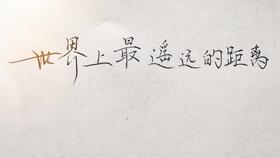 世界上最遥远的距离